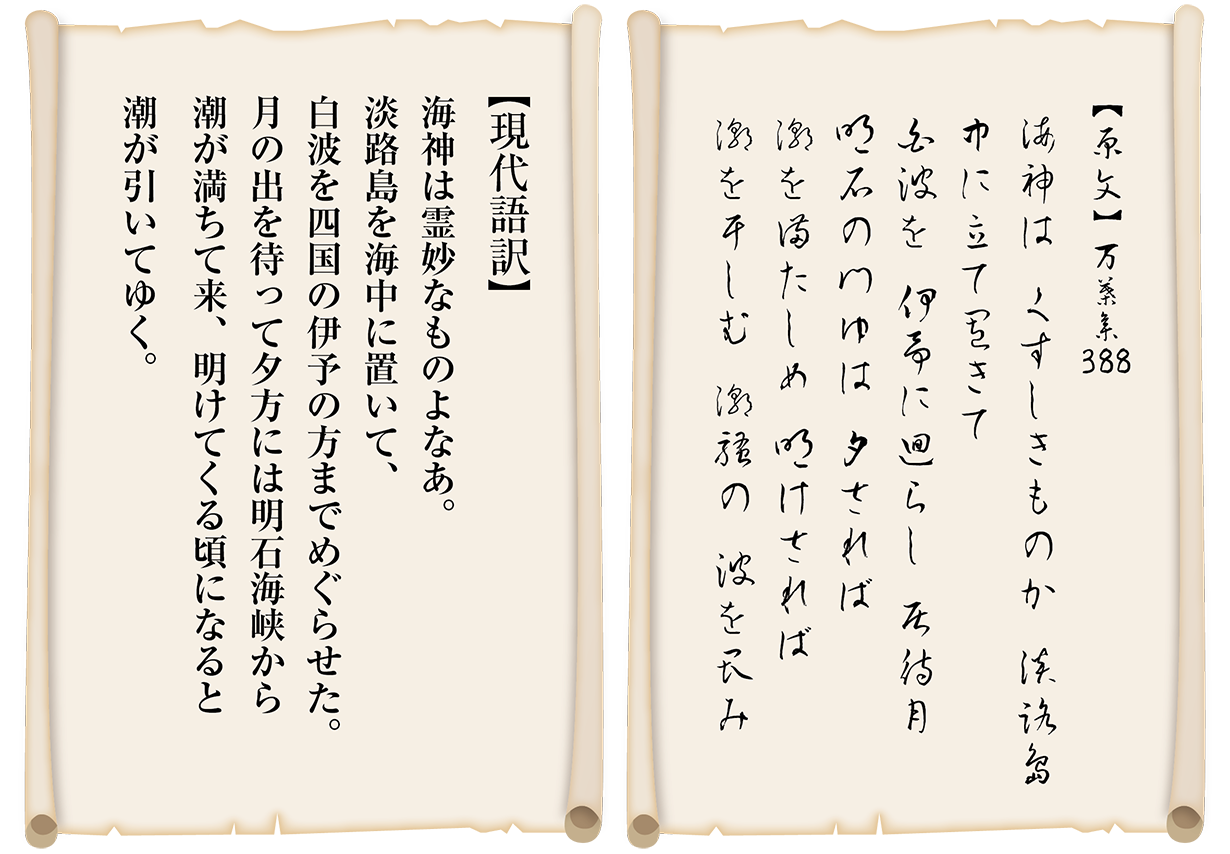 【原文】万葉集388
海神は くすしきものか 淡路島
中に立て置きて
白波を 伊予に廻らし 居待月
明石の門ゆは 夕されば
潮を満たしめ 明けされば
潮を干しむ 潮騒の 波を畏み
【現代語訳】
海神は霊妙なものよなあ。
淡路島を海中に置いて、
白波を四国の伊予の方までめぐらせた。
月の出を待って夕方には明石海峡から
潮が満ちて来、明けてくる頃になると
潮が引いてゆく。